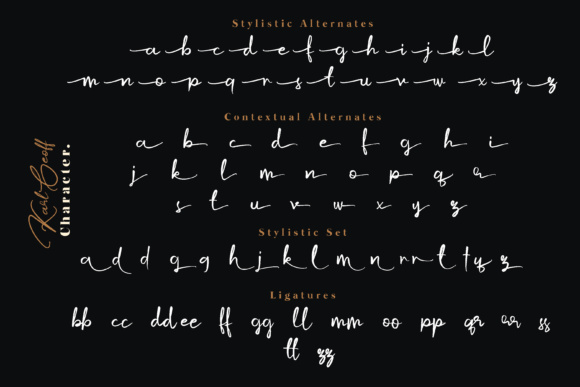 Stylistic Alternates
a b c d e f g h i j k l
m n o p q r s t u v w x y z
Contextual Alternates
a b c d e f g h i
j k l m n o p q r
s t u v w x y z
Karl Geoff
Character.
Stylistic Set
a d d g g h j k l m n r r t t y z z
Ligatures
bb cc dd ee ff gg ll mm oo pp qr rr ss
tt zz